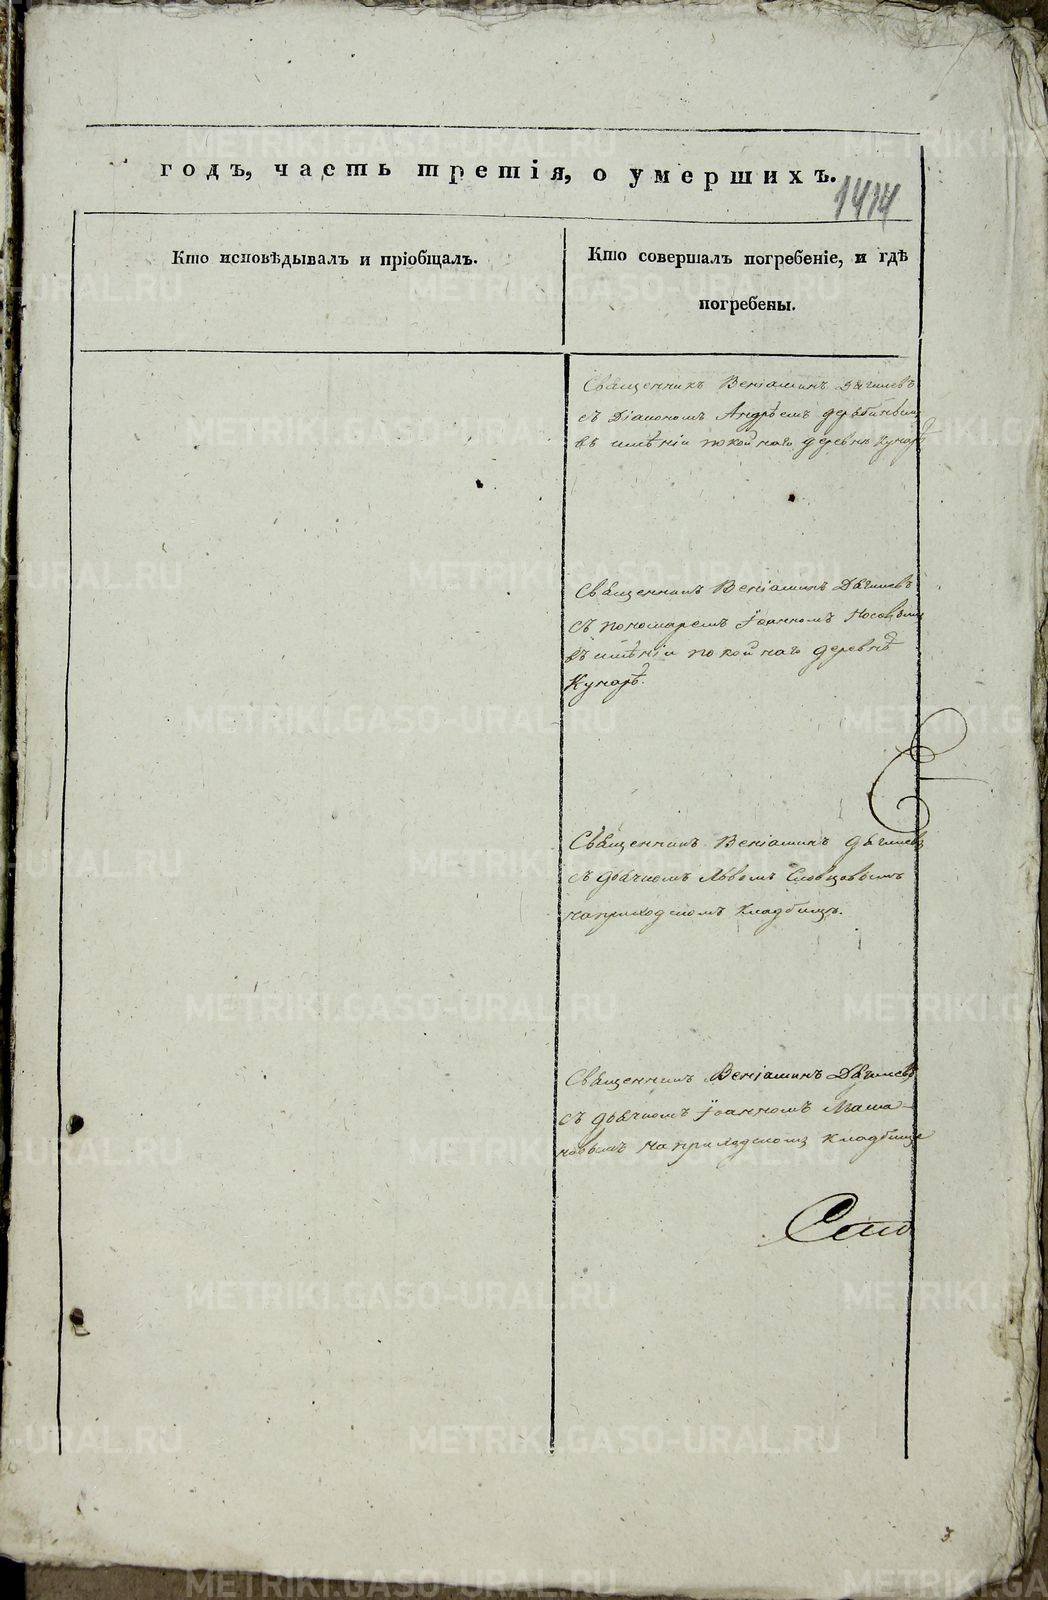 годъ, часть третія, о умершихъ.
1414
Кто исповѣдывалъ и пріобщалъ.
Кто совершалъ погребеніе, и гдѣ
погребены.
Священникъ Веніаминъ Дягилевъ
съ Діакономъ Андрѣемъ
въ имѣніи покойнаго деревнѣ Кунарѣ
Священникъ Веніаминъ Дягилевъ
съ пономаремъ Іоанномъ Носовымъ
въ имѣніи покойнаго деревнѣ
Кунарѣ.
Священникъ Веніаминъ Дягилевъ
съ дьячкомъ Львомъ Словцовымъ
на приходскомъ кладбищѣ.
Священникъ Веніаминъ Дягилевъ
съ дьячкомъ Іоанномъ Маша-
новымъ на приходскомъ кладбище
METRIKI.GASO-URAL.RU